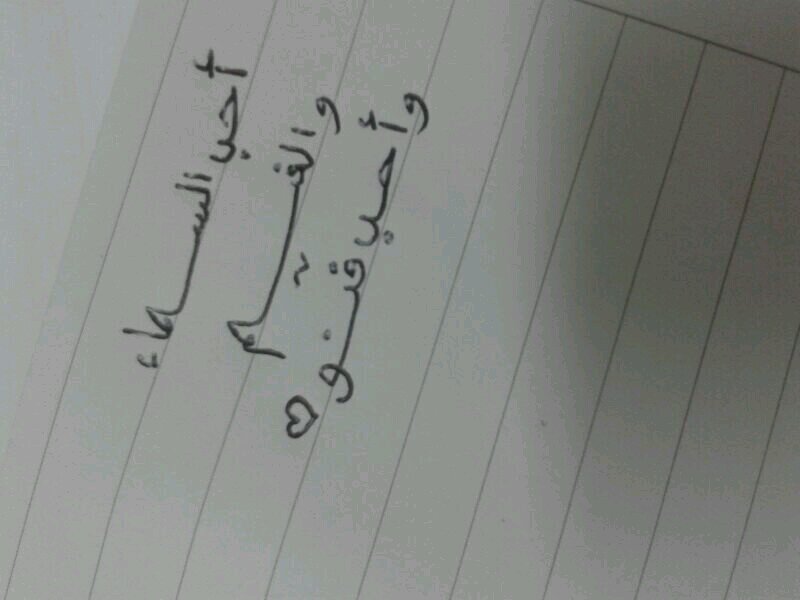 أحب السماء
والغيم
وأحب فنو ♡